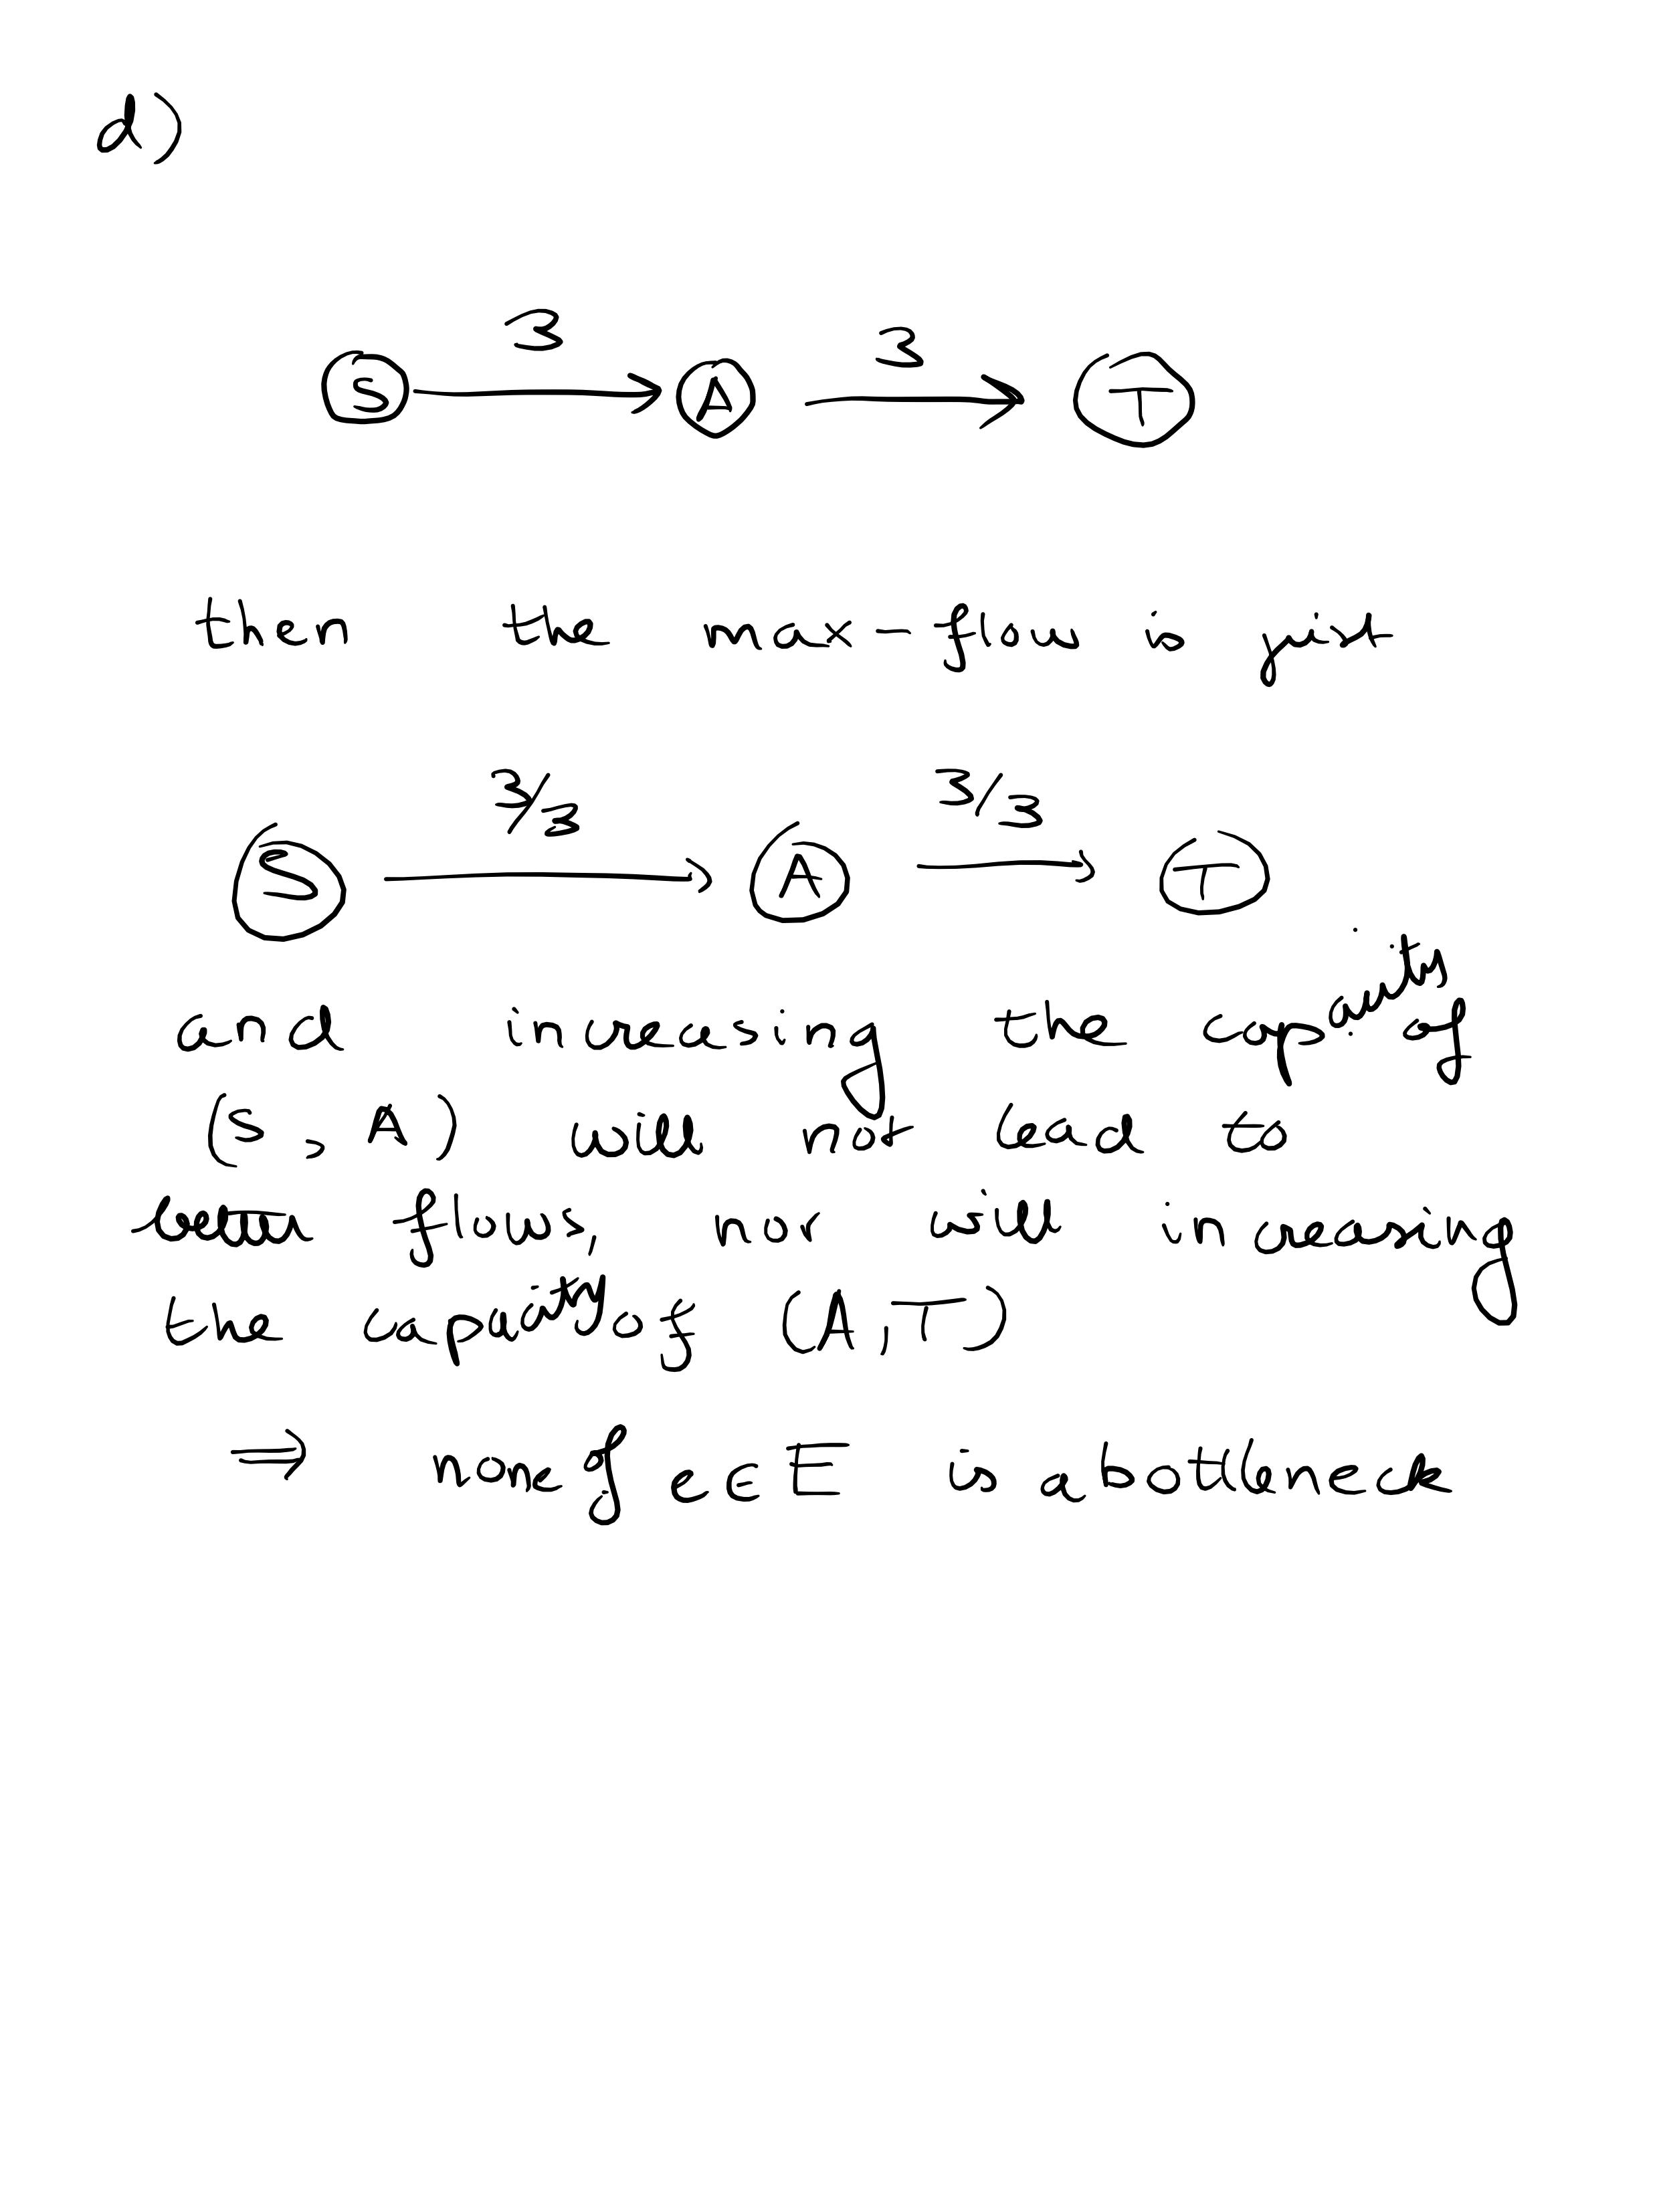 d)
3 3
S A T
then the max-flow is just
3/3 3/3
S A T
and increasing the capacity of
(S, A) will not lead to
better flows, nor will increasing
the capacity of (A,T)
⇒ none of e∈E is a bottleneck